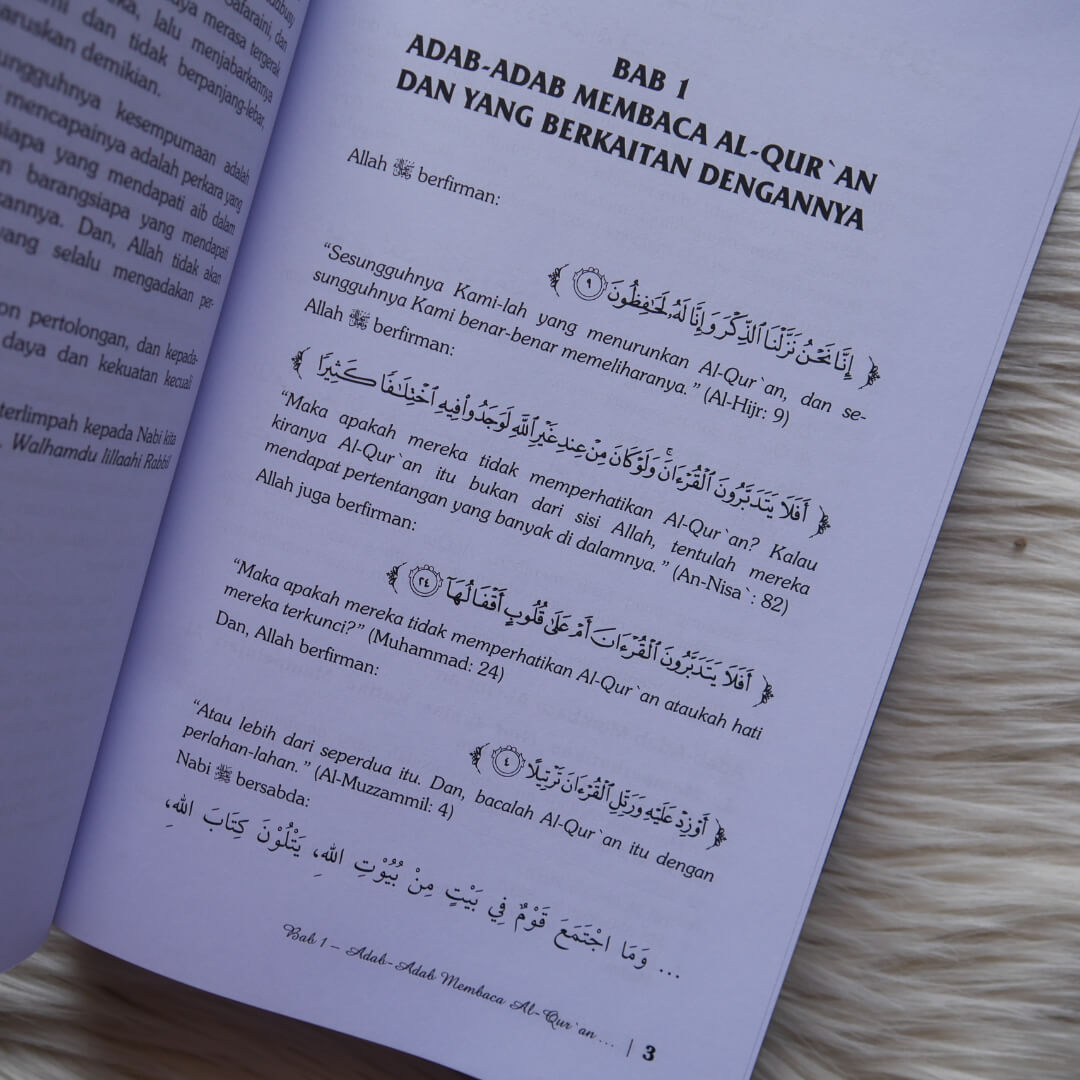 Safaraini, dan
merasa tergerak
lalu menjabarkannya
dan tidak berpanjang-lebar,
demikian.
kesempurnaan adalah
mencapainya adalah perkara yang
yang mendapati aib dalam
barangsiapa yang mendapati
Dan, Allah tidak akan
yang selalu mengadakan per-
pertolongan, dan kepada-
daya dan kekuatan kecuali
terlimpah kepada Nabi kita
Walhamdu lillaahi Rabbil
BAB 1
ADAB-ADAB MEMBACA AL-QUR`AN
DAN YANG BERKAITAN DENGANNYA
Allah ﷻ berfirman:
﴿ إِنَّا نَحْنُ نَزَّلْنَا ٱلذِّكْرَ وَإِنَّا لَهُۥ لَحَـٰفِظُونَ ٩ ﴾
“Sesungguhnya Kami-lah yang menurunkan Al-Qur`an, dan se-
sungguhnya Kami benar-benar memeliharanya.” (Al-Hijr: 9)
Allah ﷻ berfirman:
﴿ أَفَلَا يَتَدَبَّرُونَ ٱلْقُرْءَانَ ۚ وَلَوْ كَانَ مِنْ عِندِ غَيْرِ ٱللَّهِ لَوَجَدُوا۟ فِيهِ ٱخْتِلَـٰفًا كَثِيرًا ﴾
“Maka apakah mereka tidak memperhatikan Al-Qur`an? Kalau
kiranya Al-Qur`an itu bukan dari sisi Allah, tentulah mereka
mendapat pertentangan yang banyak di dalamnya.” (An-Nisa`: 82)
Allah juga berfirman:
﴿ أَفَلَا يَتَدَبَّرُونَ ٱلْقُرْءَانَ أَمْ عَلَىٰ قُلُوبٍ أَقْفَالُهَآ ٢٤ ﴾
“Maka apakah mereka tidak memperhatikan Al-Qur`an ataukah hati
mereka terkunci?” (Muhammad: 24)
Dan, Allah berfirman:
﴿ أَوْ زِدْ عَلَيْهِ وَرَتِّلِ ٱلْقُرْءَانَ تَرْتِيلًا ٤ ﴾
“Atau lebih dari seperdua itu. Dan, bacalah Al-Qur`an itu dengan
perlahan-lahan.” (Al-Muzzammil: 4)
Nabi ﷺ bersabda:
... وَمَا اجْتَمَعَ قَوْمٌ فِي بَيْتٍ مِنْ بُيُوْتِ اللهِ، يَتْلُوْنَ كِتَابَ اللهِ،
Bab 1 – Adab-Adab Membaca Al-Qur`an ... | 3